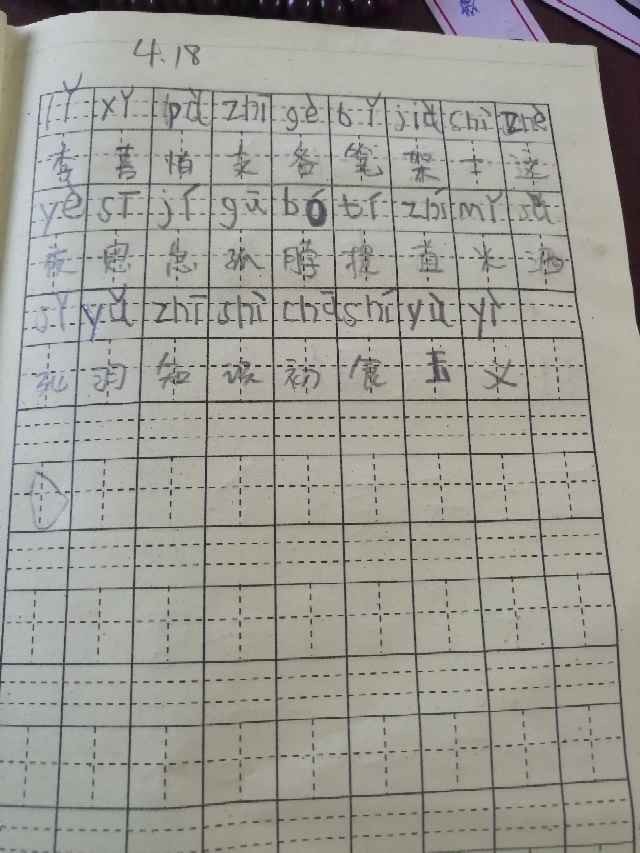 4.18
lǐ xǐ pà zhī gè bǐ jià shì zhè
李 喜 怕 支 各 笔 架 士 这
yè sī jí gū bó tí zhí mǐ sǎ
夜 思 急 孤 脖 提 直 米 洒
yǔ zhī shi chū shí yù yì
知 识 初 食 玉 义